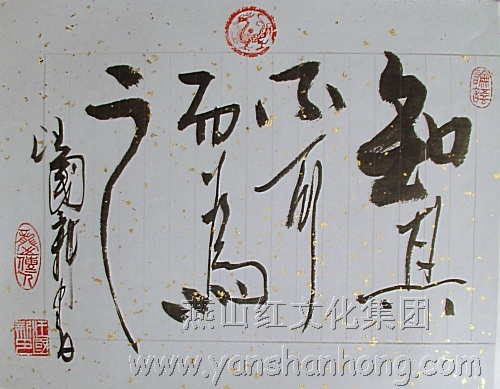 知其
不可
而為
之
汪國新
燕山红文化集团
www.yanshanhong.com